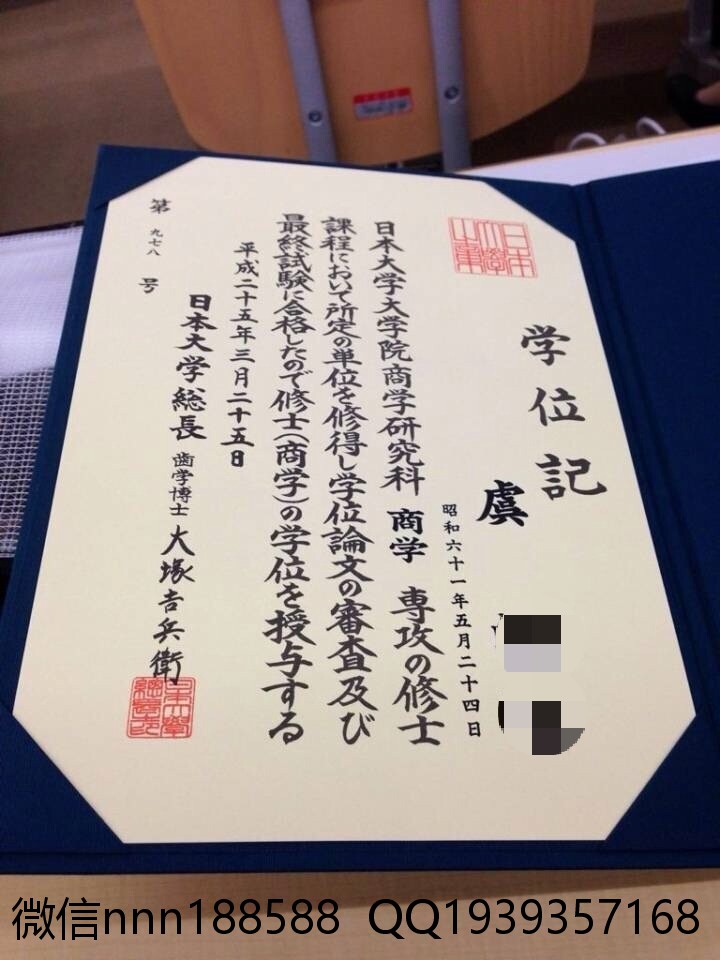 学位記
虞
昭和六十一年五月二十四日
日本大学大学院商学研究科 商学 専攻の修士
課程において所定の単位を修得し学位論文の審査及び
最終試験に合格したので修士(商学)の学位を授与する
平成二十五年三月二十五日
日本大学総長 歯学博士 大塚吉兵衛
第 九七八 号
微信nnn188588 QQ1939357168